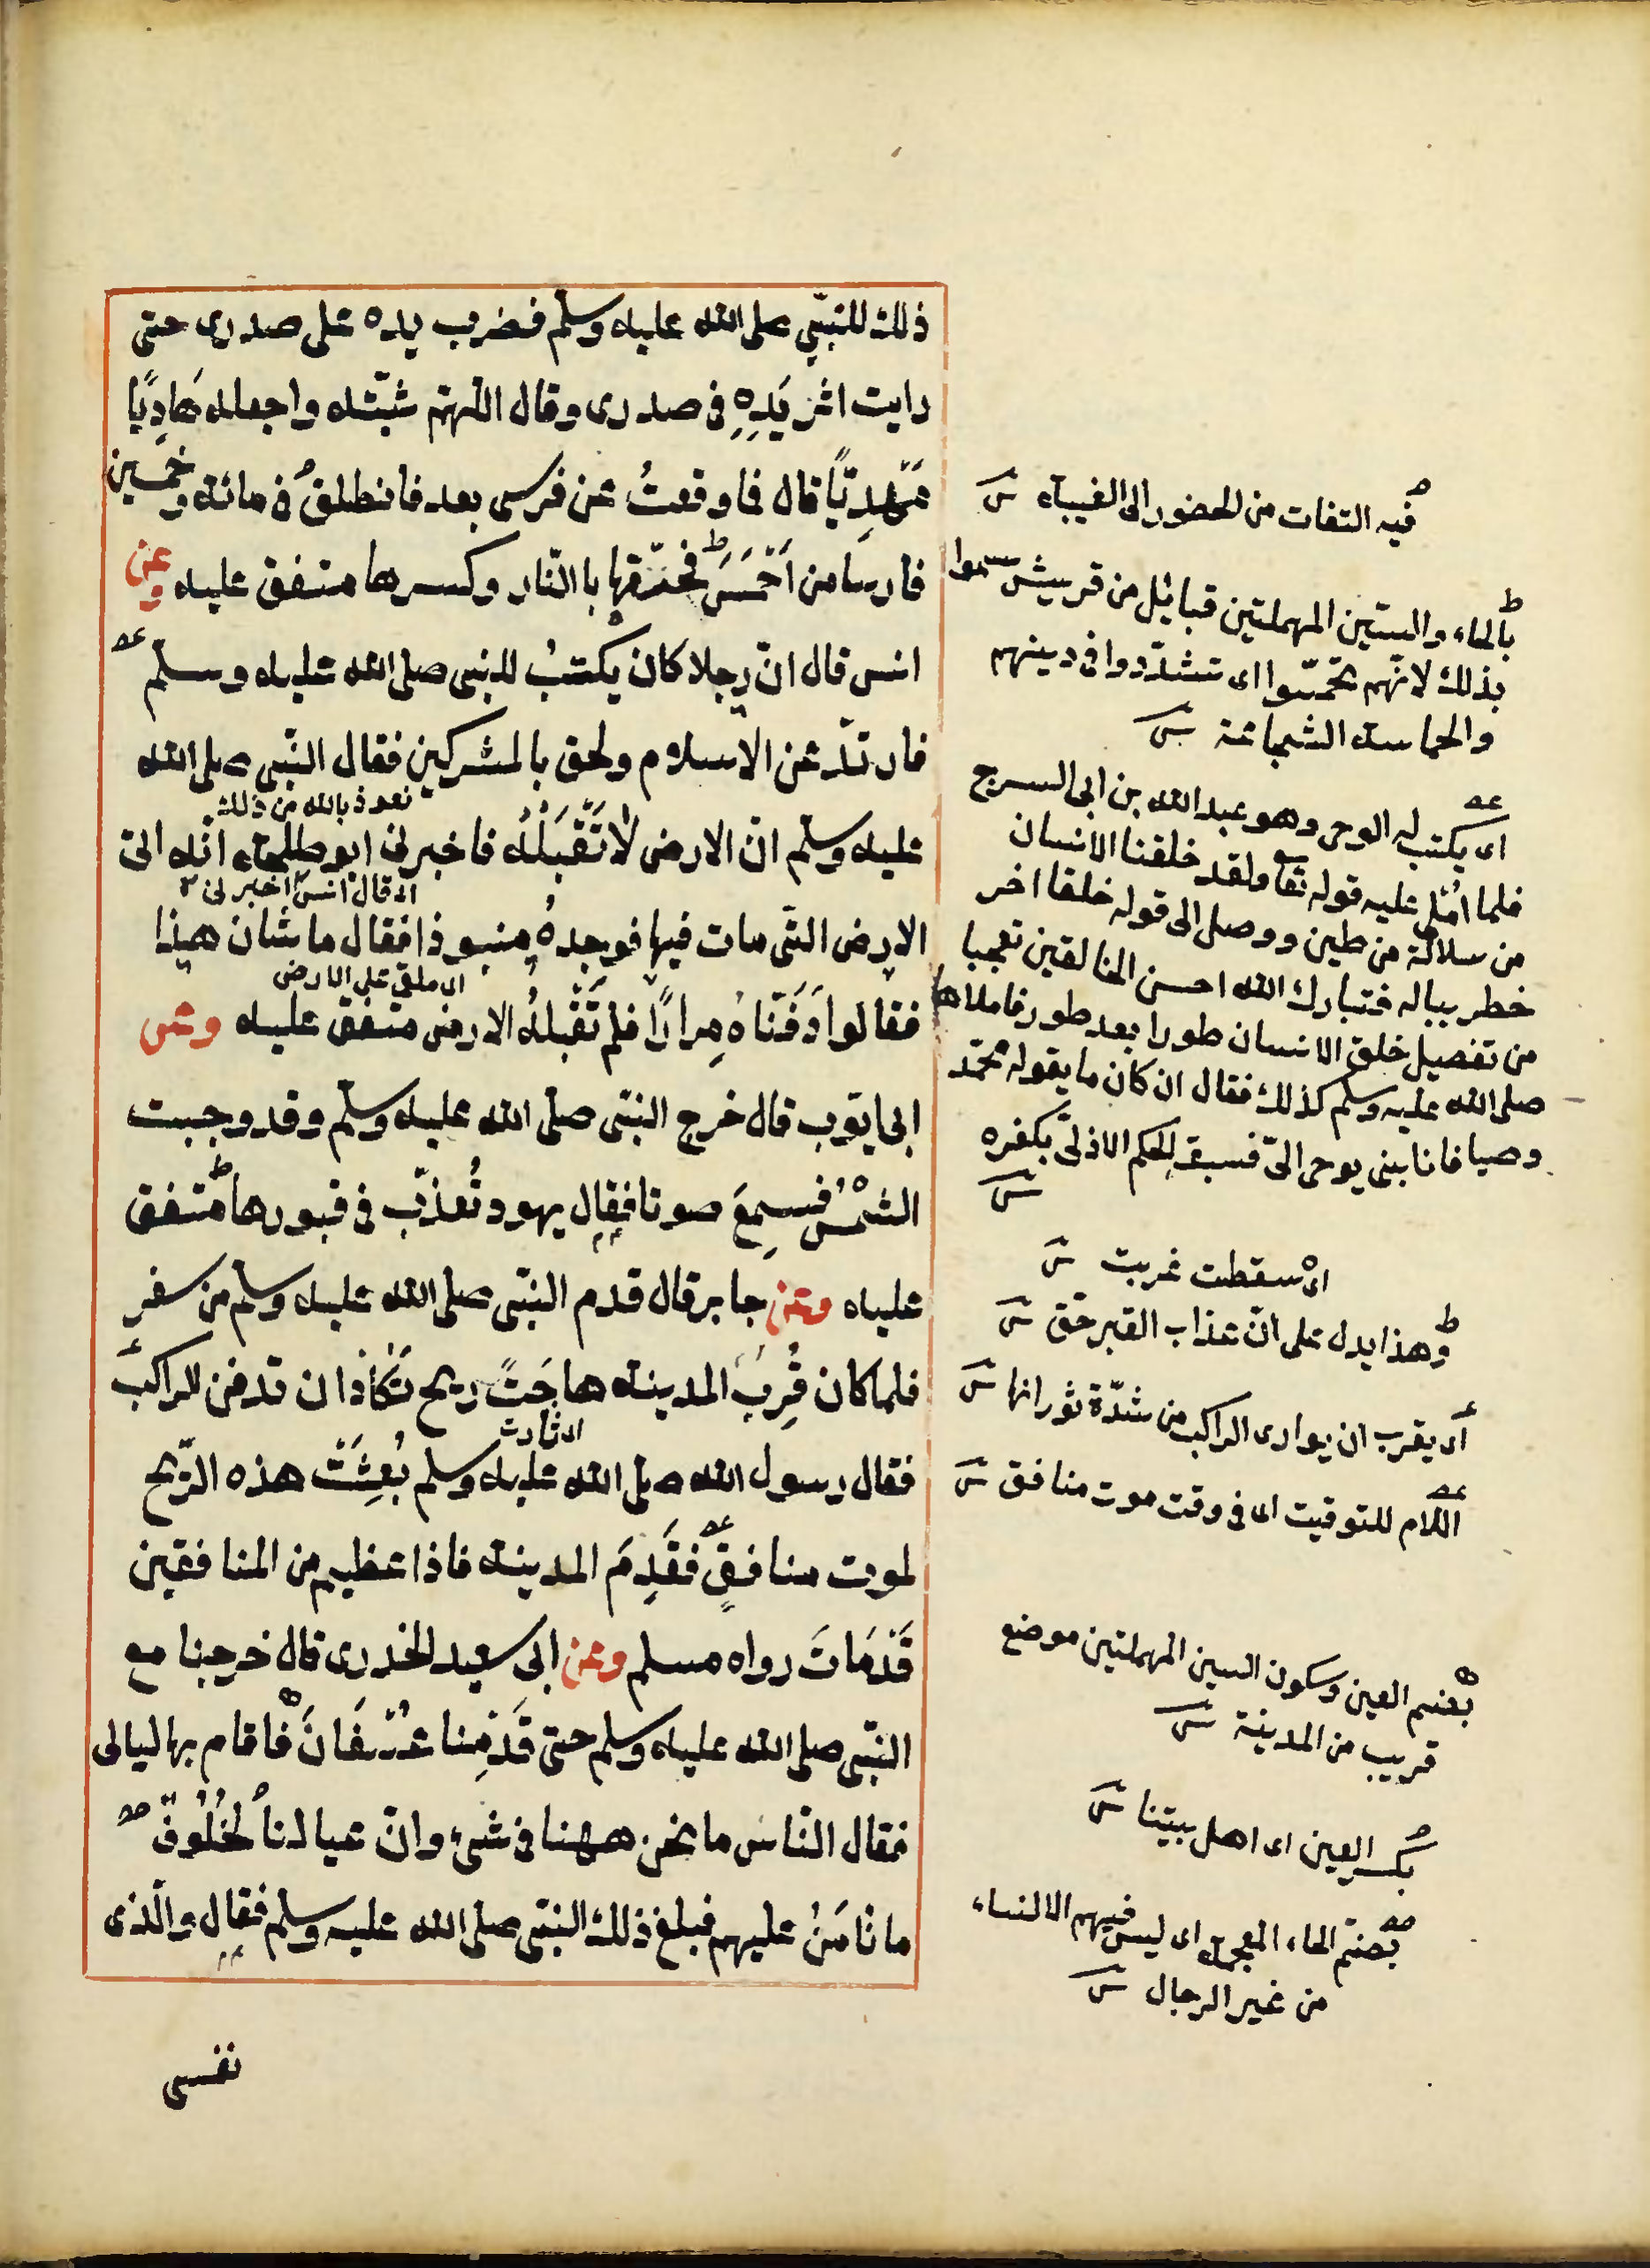 ذلك للنبّي صلى الله عليه وسلّم فضرب يده على صدرى حتى
رايت اثر يَدِهِ فى صدرى وقال اللّهمّ ثبّته واجعله هَادِيًا
مَهْدِيّاً قال فما وقعتُ عن فرسى بعد فانطلقُ فى مائة وخمسين
فارسا من اَحْمَسَ فحرّقها بالنّار وكسرها متفق عليه وعن
انس قال انّ رجلا كان يكتبُ للنبى صلى الله عليه وسلم
فارتدّ عن الاسلام ولحق بالمشركين فقال النّبى صلى الله
نعوذ بالله من ذلك
عليه وسلّم انّ الارض لَا تَقْبَلُهُ فاخبرنى ابو طلحة انّه اتى
اى قال انس اخبرنى
الارض التّى مات فيها فوجدهُ منبوذا فقال ما شان هذا
اى ملقى على الارض
فقالوا دَفَنّاهُ مِراراً فلم تَقْبَلْهُ الارض متفق عليه وعن
ابى ايّوب قال خرج النبّى صلّى الله عليه وسلّم وقد وجبت
الشمْسُ فسمِعَ صوتا فقال يهود تُعذّب فى قبورها متفق
عليه وعن جابر قال قدم النبّى صلى الله عليه وسلم من سفر
فلما كان قُربَ المدينة هاجَتْ ريح تَكادُ ان تدفن الراكب
اى ثارت
فقال رسول الله صلى الله عليه وسلم بُعِثَتْ هذه الرّيح
لموت منافقٍ فقَدِمَ المدينة فاذا عظيم من المنافقين
قَدْ مَاتَ رواه مسلم وعن ابى سعيد الخدرى قال خرجنا مع
النبّى صلى الله عليه وسلم حتى قَدِمْنا عُسْفَانَ فاقام بها ليالى
فقال النّاس ما نحن ههنا فى شىء وانّ عيالنا لَخُلُوفٌ
ما نَأمَنُ عليهم فبلغ ذلك النبّى صلى الله عليه وسلم فقال والّذى
نفسى
فيه التفات من الحضور الى الغيبة ش
بالحاء والسّين المهملتين قبائل من قريش سموا
بذلك لانّهم تحمّسوا اى تشدّدوا فى دينهم
والحماسة الشجاعة ش
اى يكتب له الوحى وهو عبد الله بن ابى السرح
فلما امُلى عليه قوله تعا ولقد خلقنا الانسان
من سلالة من طين ووصل الى قوله خلقا اخر
خطر بباله فتبارك الله احسن الخالقين تعجبا
من تفصيل خلق الانسان طورا بعد طور فاملاها
صلى الله عليه وسلم كذلك فقال ان كان ما يقوله محمّد
وحيا فانا نبى يوحى الىّ فسبق الحكم الازلىّ بكفره
ش
اىْ سقطت غربت ش
وهذا يدل على انّ عذاب القبر حقّ ش
اى يقرب ان يوارى الراكب من شدّة ثورانها ش
اللام للتوقيت اى فى وقت موت منافق ش
بضم العين وسكون السين المهملتين موضع
قريب من المدينة ش
بكسر العين اى اهل بيتنا ش
بضمّ الخاء المعجمة اى ليس فيهم الا النساء
من غير الرجال ش